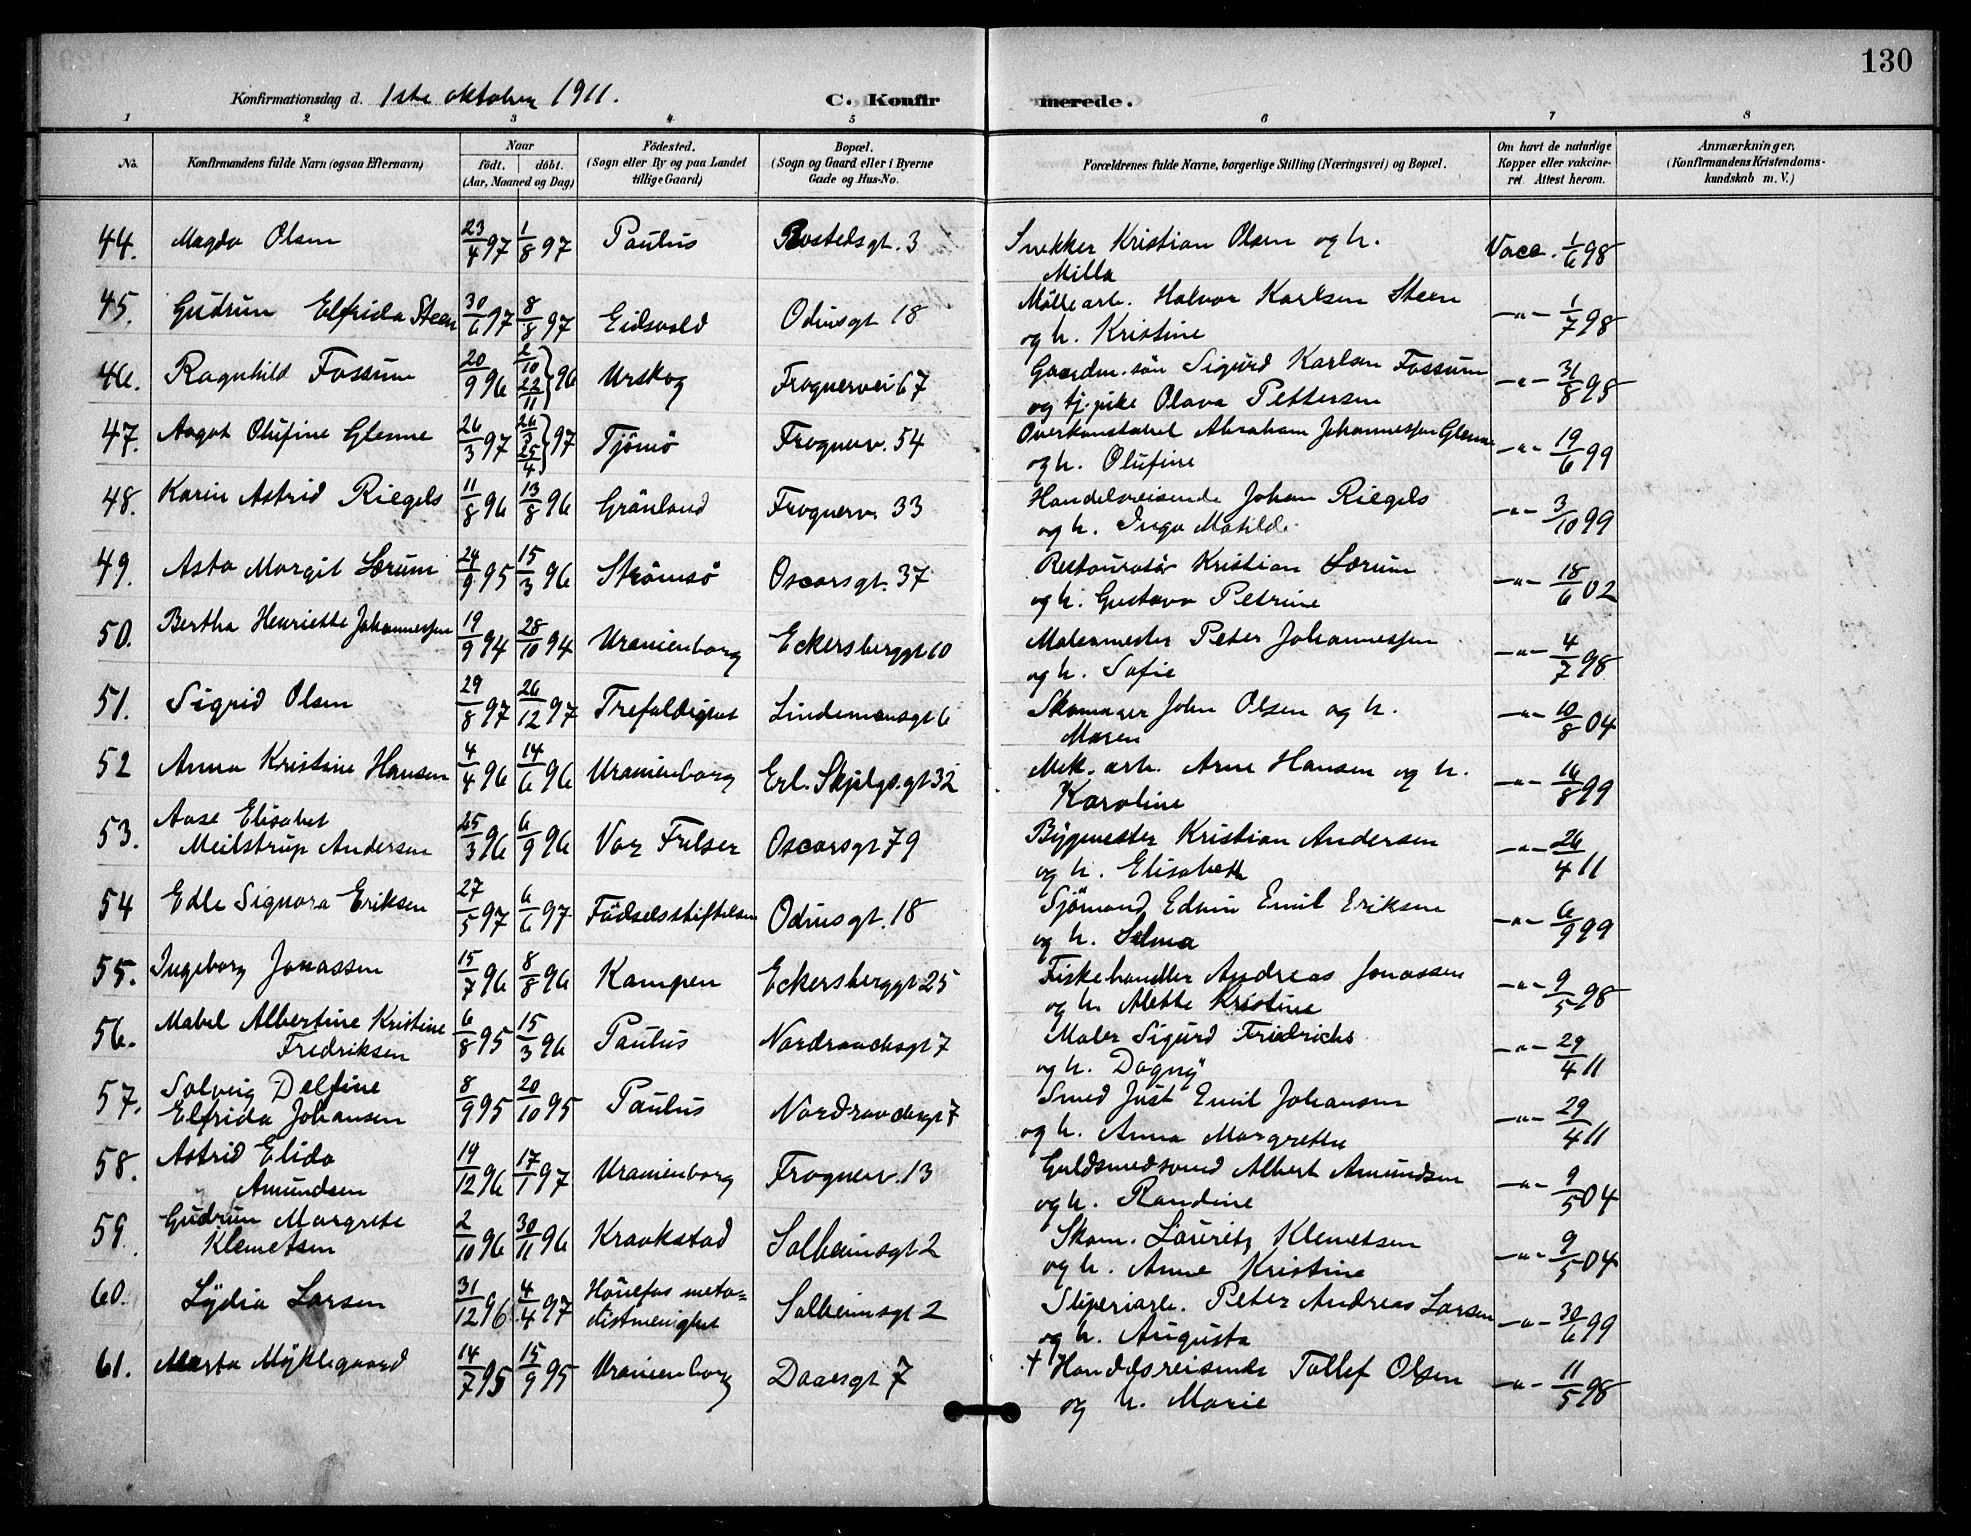 130
Konfirmationsdag d. 1ste oktober 1911. C. Konfirmerede.
1 2 3 4 5 6 7 8
No. Konfirmandens fulde Navn (ogsaa Efternavn) Naar födt. döbt. (Aar, Maaned og Dag) Födested. (Sogn eller By og paa Landet tillige Gaard) Bopæl. (Sogn og Gaard eller i Byerne Gade og Hus-No. Forældrenes fulde Navne, borgerlige Stilling (Næringsvei) og Bopæl. Om havt de naturlige Kopper eller vakcineret. Attest herom. Anmærkninger. (Konfirmandens Kristendomskundskab m. V.)
44. Magda Olsen 23/4 97 1/8 97 Paulus Rostedsgt. 3 Snekker Kristian Olsen og h. Milla Vacc. 1/6 98
45. Gudrun Elfrida Steen 30/6 97 8/8 97 Eidsvold Odinsgt 18 Möllearb. Halvor Karlsen Steen og h. Kristine -"- 1/7 98
46. Ragnhild Fossum 20/9 96 2/10 22/11 } 96 Urskog Frognervei 67 Gaardm. sön Sigurd Karlsen Fossum og tj. pike Olava Pettersen -"- 31/8 98
47. Aagot Olufine Glenne 26/3 97 26/3 25/4 } 97 Tjömö Frognerv. 54 Overkonstabel Abraham Johannessen Glenne og h. Olufine -"- 19/6 99
48. Karin Astrid Riegels 11/8 96 13/8 96 Grönland Frognerv. 33 Handelsreisende Johan Riegels og h. Inga Matilde -"- 3/10 99
49. Asta Margit Lærum 24/9 95 15/3 96 Strömsö Oscarsgt. 37 Restauratör Kristian Lærum og h. Gustava Petrine -"- 18/6 02
50. Bertha Henriette Johannessen 19/9 94 28/10 94 Uranienborg Eckersberggt 10 Malermester Peter Johannessen og h. Sofie -"- 4/7 98
51. Sigrid Olsen 29/8 97 26/12 97 Trefoldighet Lindemansgt 6 Skomaker John Olsen og h. Maren -"- 10/8 04
52 Anna Kristine Hansen 4/4 96 14/6 96 Uranienborg Erl. Skjlgs.gt 32 Mek. arb. Arne Hansen og h. Karoline -"- 16/8 99
53. Aase Elisabet Meilstrup Andersen 25/3 96 6/9 96 Vor Frelser Oscarsgt 79 Bygmester Kristian Andersen og h. Elisabeth -"- 26/4 11
54 Edle Signora Eriksen 27/5 97 6/6 97 Födselsstiftelsen Odinsgt. 18 Sjömand Edvin Emil Eriksen og h. Selma -"- 6/9 99
55. Ingeborg Jonassen 15/7 96 8/8 96 Kampen Eckersberggt 25 Fiskehandler Andreas Jonassen og h. Alette Kristine -"- 9/5 98
56. Mabel Albertine Kristine Fredriksen 6/8 95 15/3 96 Paulus Nordraachsgt 7 Maler Sigurd Friedrichs og h. Dagny -"- 29/4 11
57. Solveig Delfine Elfrida Johansen 8/9 95 20/10 95 Paulus Nordraachsgt 7 Smed Just Emil Johansen og h. Anna Margrethe -"- 29/4 11
58. Astrid Elida Amundsen 19/12 96 17/1 97 Uranienborg Frognerv. 13 Guldsmedsvend Albert Amundsen og h. Randine -"- 9/5 04
59. Gudrun Margrete Klemetsen 2/10 96 30/11 96 Kraakstad Solheimsgt 2 Skom. Lauritz Klemetsen og h. Anne Kristine -"- 9/5 04
60. Lydia Larsen 31/12 96 4/4 97 Hönefos metodistmenighet Solheimsgt 2 Sliperiarb. Peter Andreas Larsen og h. Augusta -"- 30/6 99
61. Marta Myklegaard 14/7 95 15/9 95 Uranienborg Daasgt 7 + Handelsreisende Tollef Olsen og h. Marie -"- 11/5 98